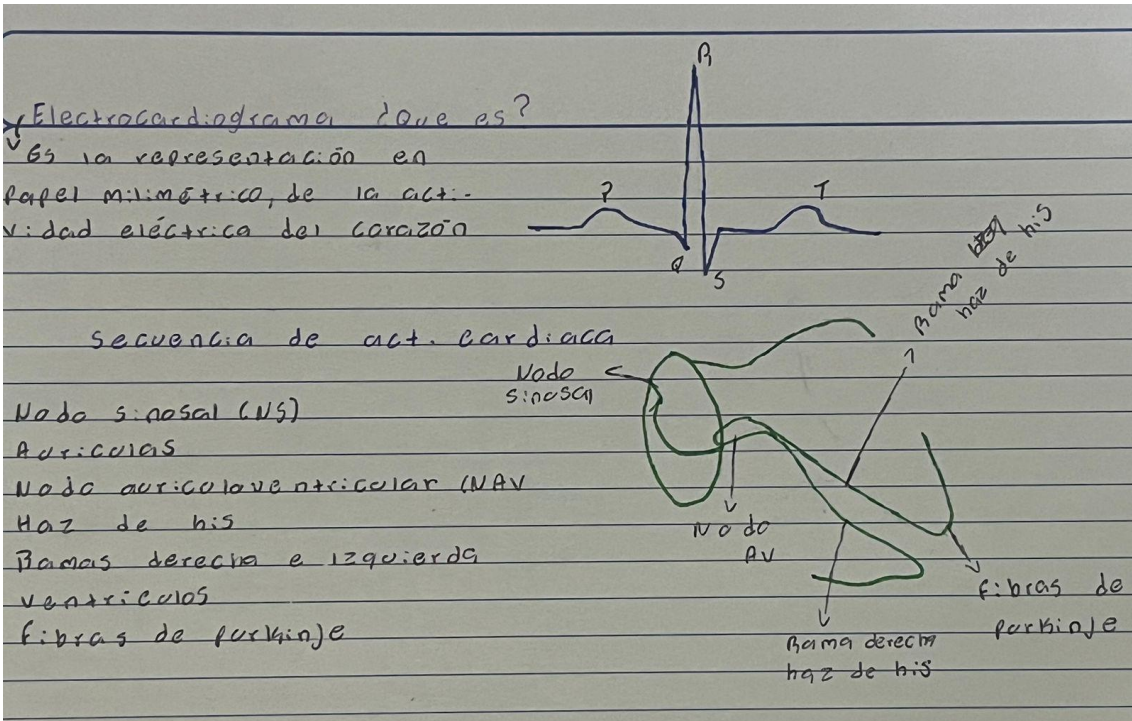 Electrocardiograma ¿Que es?
Es la representación en
Papel milimétrico, de la acti-
vidad eléctrica del corazón
R
P
T
Q
S
secuencia de act. cardiaca
Nodo sinosal (NS)
Auriculas
Nodo auriculoventricular (NAV
Haz de his
Ramas derecha e izquierda
ventriculos
fibras de purkinje
Nodo
sinosal
Rama
haz de his
Nodo
AV
fibras de
purkinje
Rama derecha
haz de his